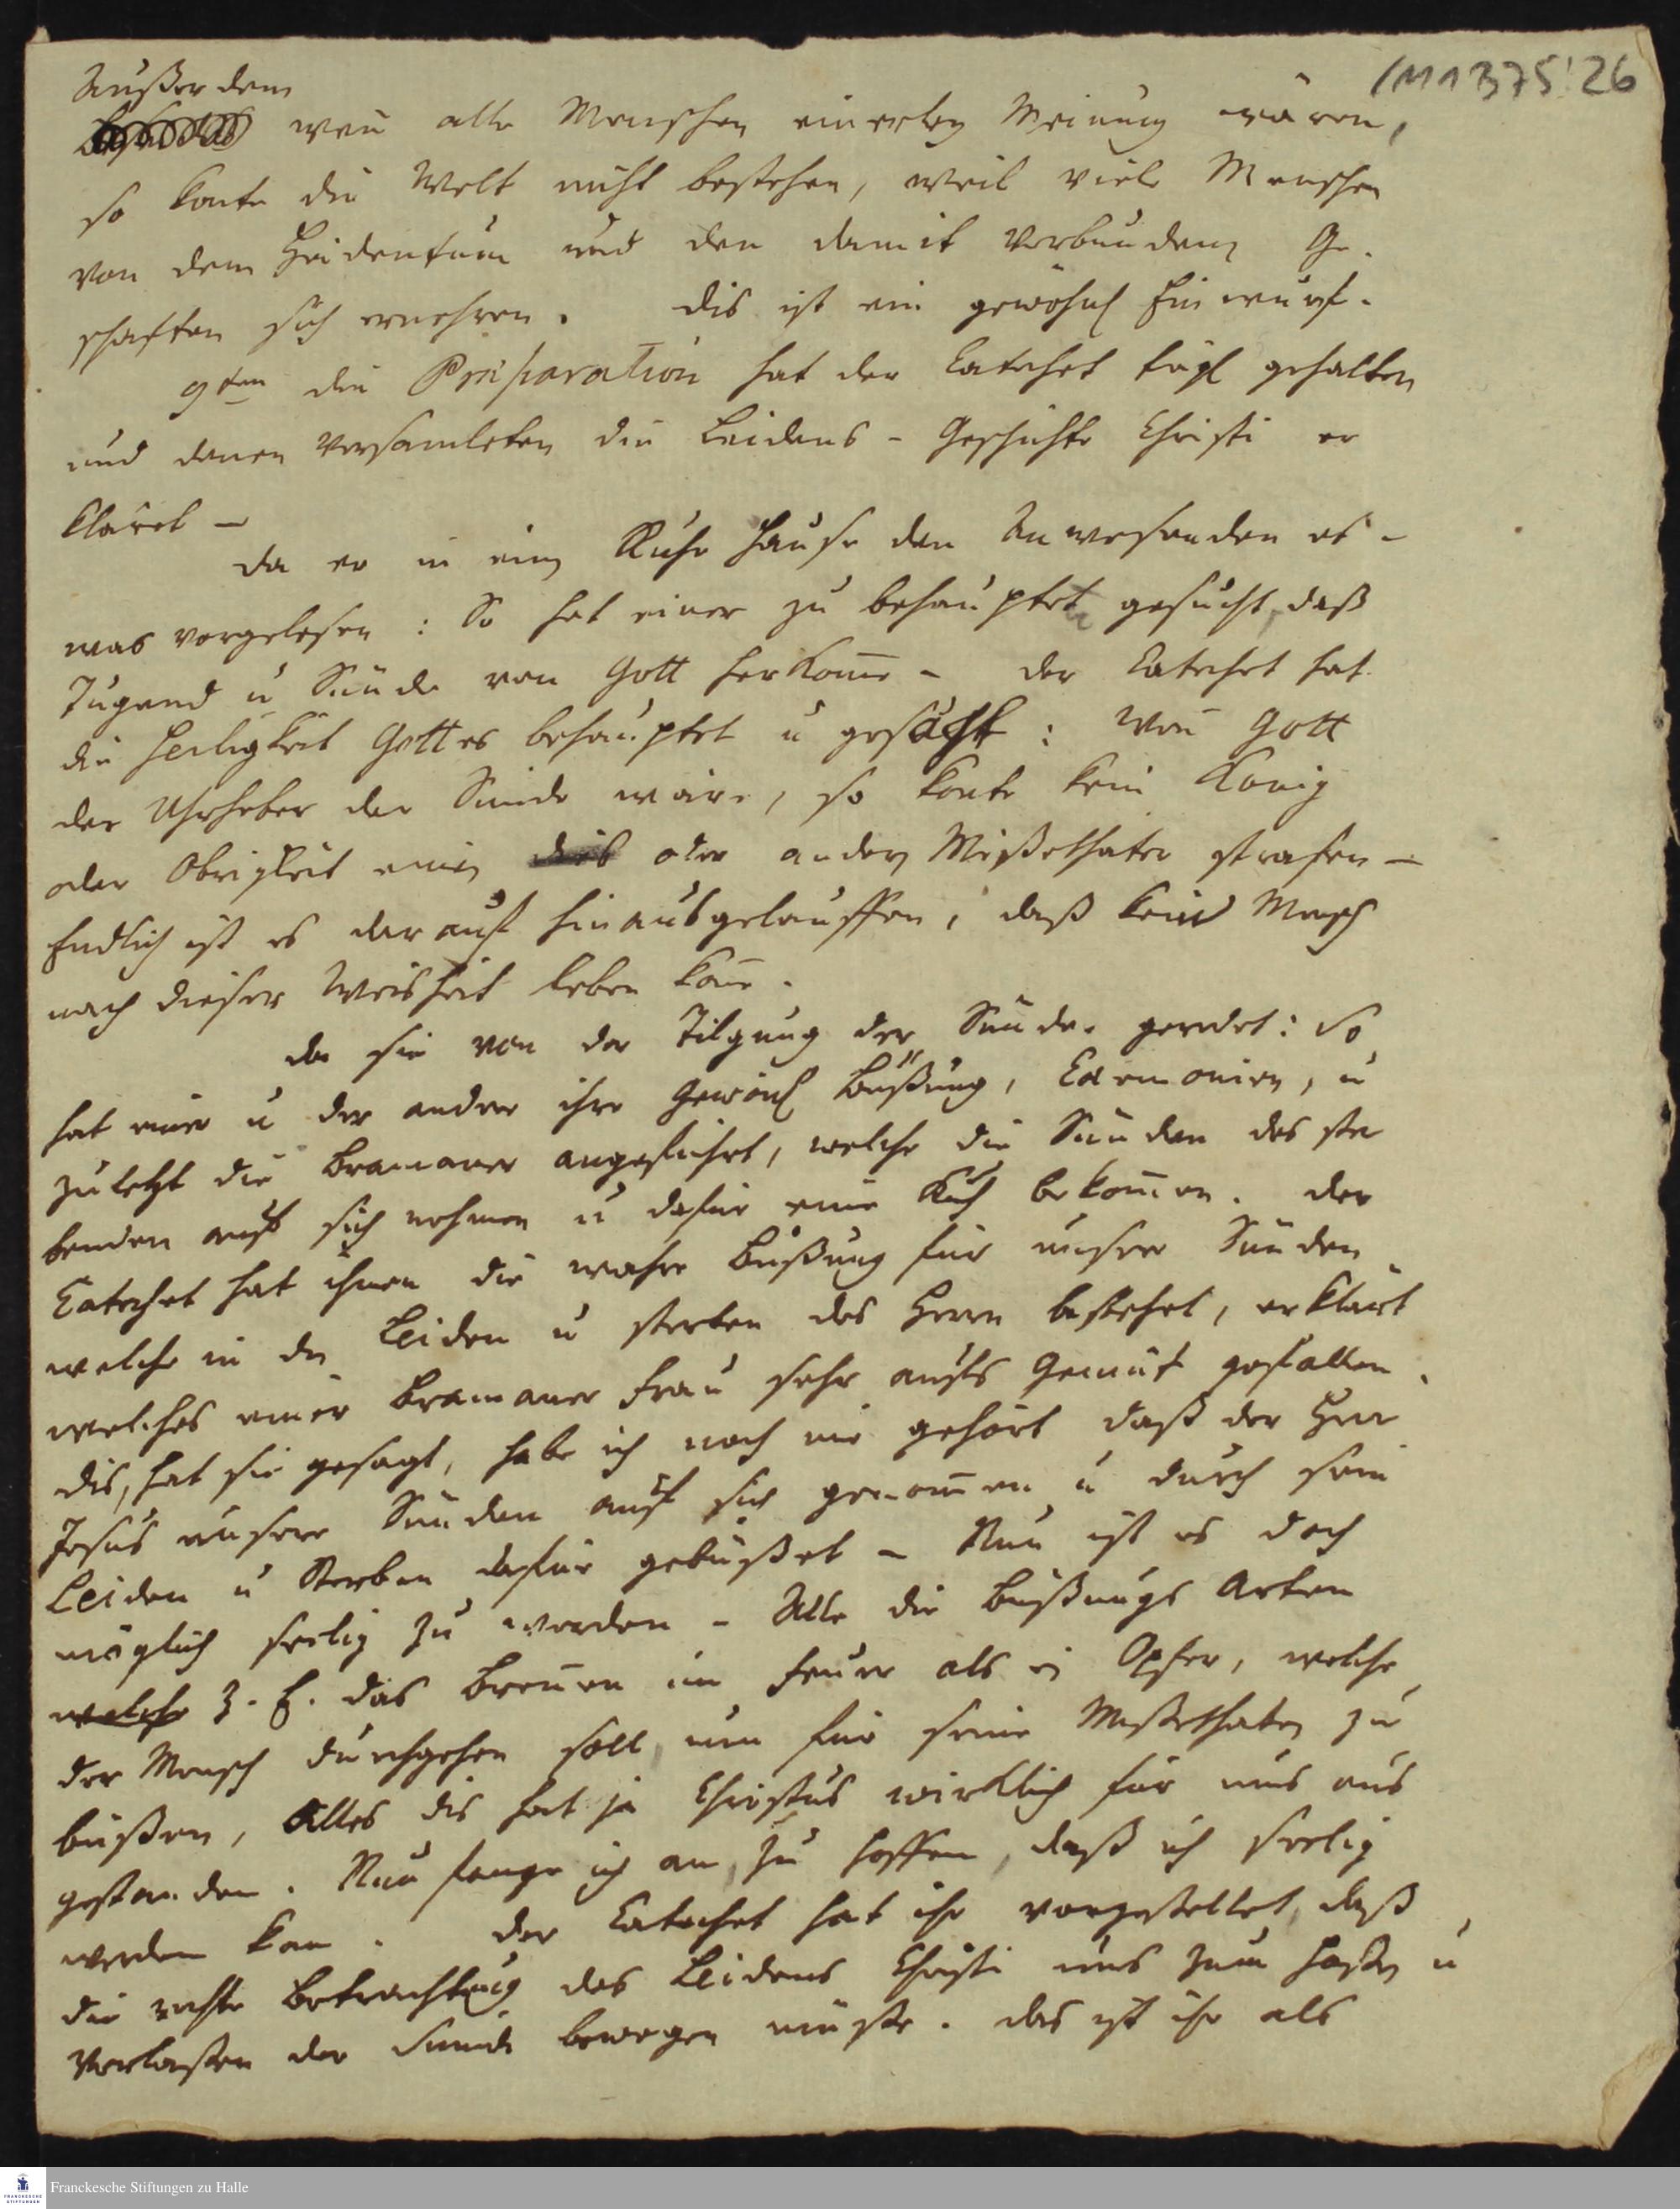 /111 375:26
Außerdem
wen alle Menschen einerley Meinung wären,
so konte die Welt nicht bestehen, weil viele Menschen
von dem Heidentum und den damit verbunden Ge-
schaften sich ernehren. Dis ist ein gewöhnl Einwurf.
9ten die Præparation hat der Catechet tägl gehalten
und denen Versamleten die Leidens-Geschichte Christi er
kläret -
da er in ein Ruhe Hause den Anwesenden et-
was vorgelesen: So hat einer zu behauptet gesucht, daß
Tugend u Sünde von Gott herkome - der Catechet hat
die Heiligkeit Gottes behauptet u gesacht: Wen Gott
der Uhrheber der Sünde wäre, so konte kein König
oder Obrigkeit einen dieb oder andern Mißethater strafen -
Endlich ist es darauf hinausgelauffen, daß kein Mensch
nach dieser Weisheit leben kone.
da sie von der Tilgung der Sünde geredet: So
hat einer u der andere ihre Gewönl Büßung, Ceremonien, u
zuletzt die Bramaner angeführt, welche die Sünden des ste
benden auf sich nehmen u dafür eine Kuh bekommen. der
Catechet hat ihnen die wahre Büßung für unsere Sünden
welche in den Leiden u sterben des Herrn bestehet, erklärt
welches einer Bramaner Frau sehr aufs Gemüt gefallen.
dis, hat sie gesagt, habe ich noch nie gehört daß der Herr
Jesus unsere Sünden auf sich genommen u durch sein
Leiden u Sterben dafür gebüßet - Nun ist es doch
möglich seelig zu werden - Alle die Büßungs Arten
welche z. E. das Brennen im Feuer als ein Opfer, welche
der Mensch durchgehen soll, um für seine Missethaten zu
büßen, alles dis hat ja Christus wirklich für uns aus
gestanden. Nun fange ich an, zu hoffen, daß ich seelig
werden kan. der Catechet hat ihr vorgestellet, daß
die rechte Betrachtung des Leidens Christi uns zum Haßen u
Verlaßen der Sünde bewegen müste. das ist ihr als
Franckesche Stiftungen zu Halle
FRANCKESCHE
STIFTUNGEN